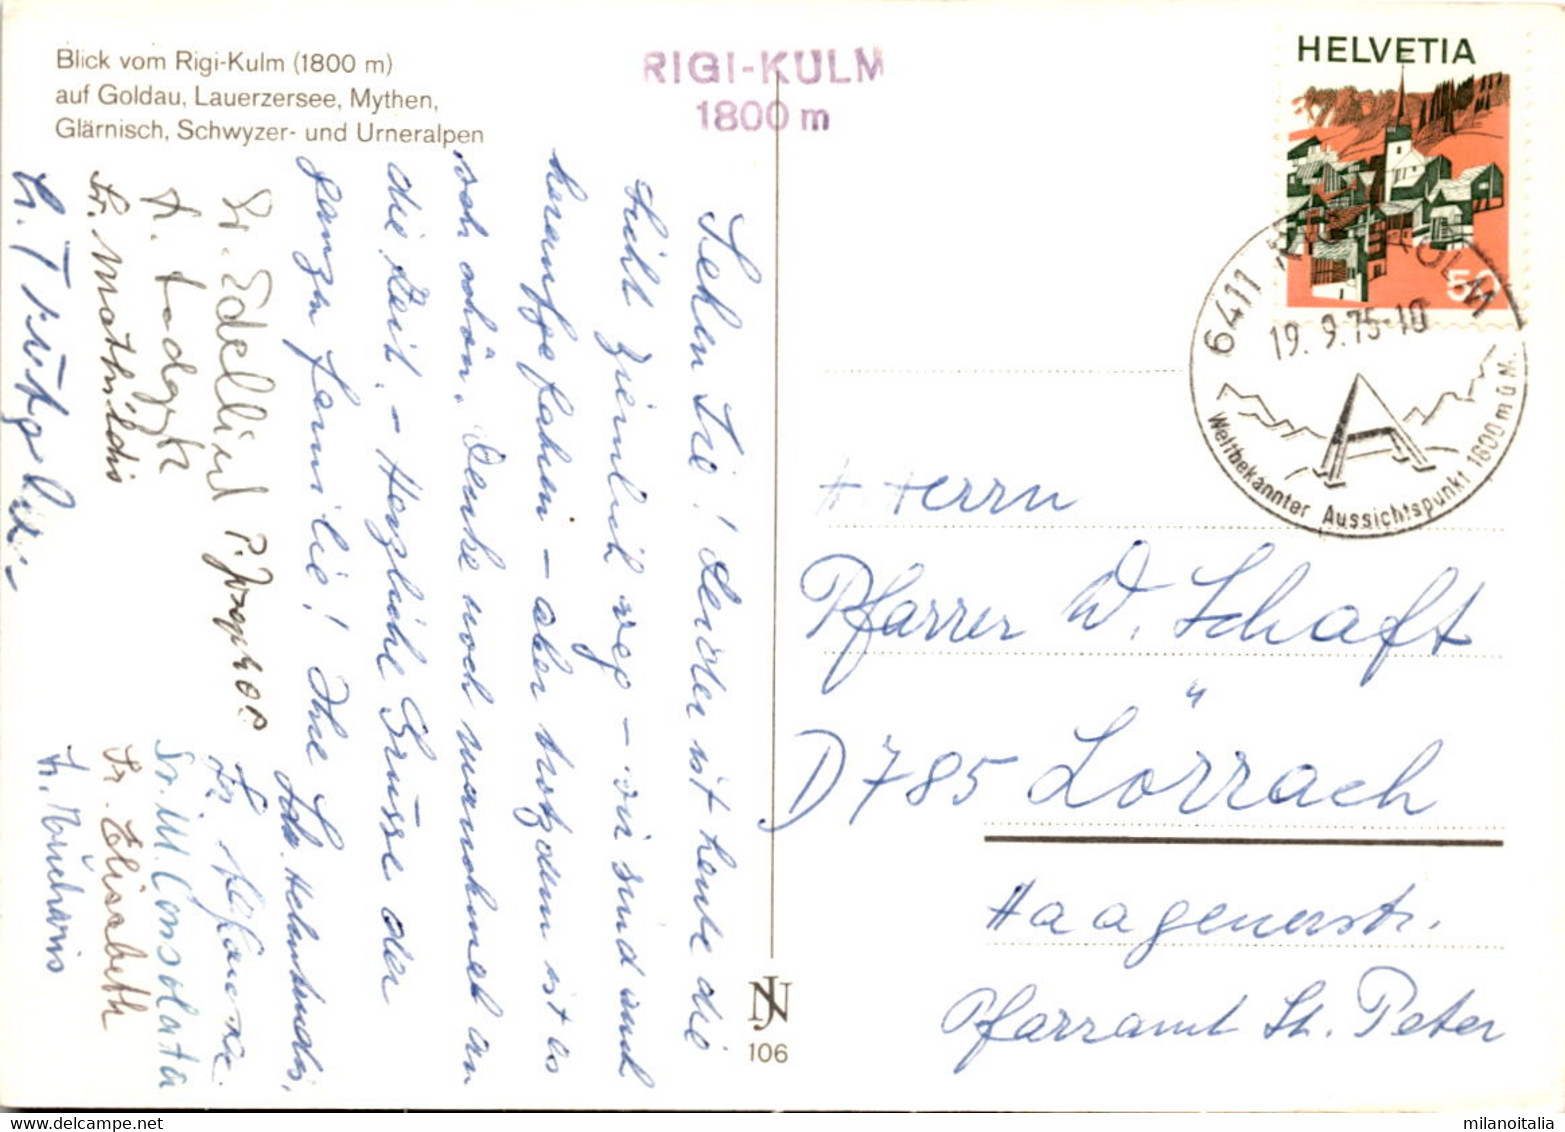 Blick vom Rigi-Kulm (1800 m)
auf Goldau, Lauerzersee, Mythen,
Glärnisch, Schwyzer- und Urneralpen
RIGI-KULM
1800 m
HELVETIA
50
6411 RIGI-KULM
19.9.75-10
Weltbekannter Aussichtspunkt 1800 m ü. M.
Sehen Sie! Leider ist heute die
Sicht ziemlich weg – wir sind auch
heraufgefahren – aber trotzdem ist es
sehr schön. Denke noch manchmal an
die Zeit. – Herzliche Grüsse der
ganzen Familie! Ihre
Sr. Edeltrud P. Josephor
Sr. Mathildis
Sr. M. Consolata
Sr. Elisabeth
Herrn
Pfarrer W. Schaft
D 785 Lörrach
Haagenerstr.
Pfarramt St. Peter
NJ
106
milanoitalia